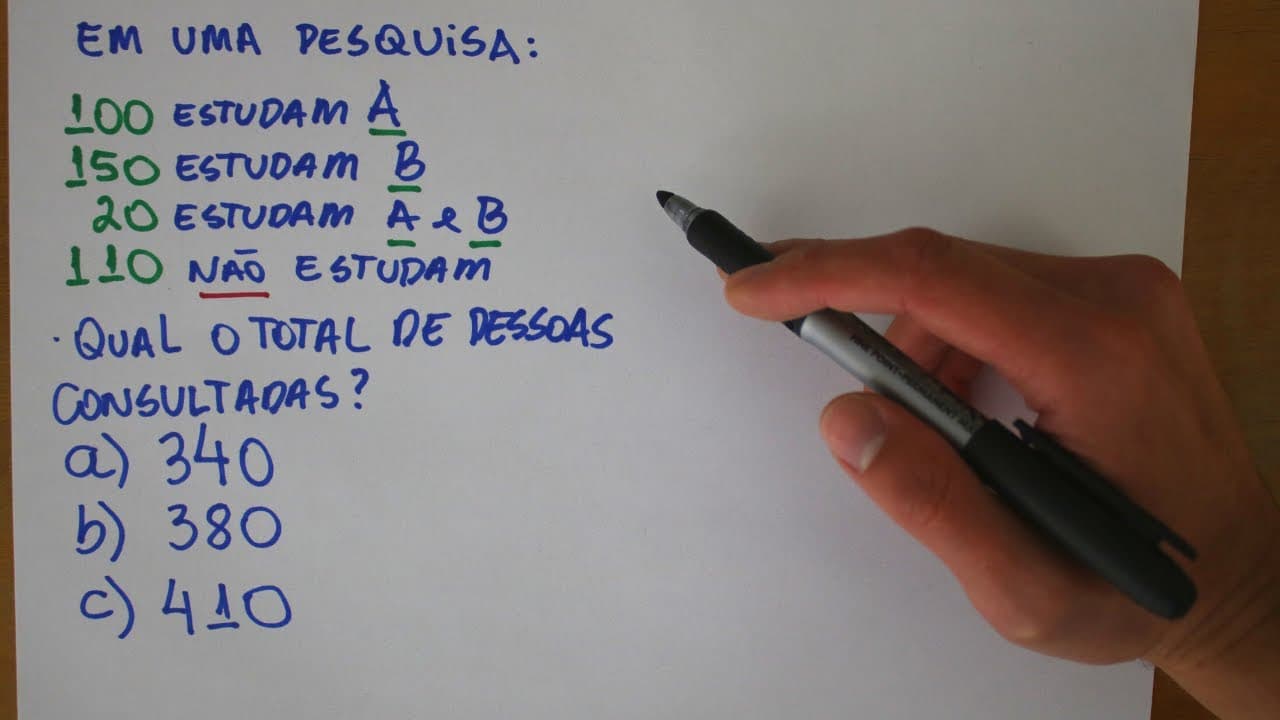 EM UMA PESQUISA:
100 ESTUDAM A
150 ESTUDAM B
20 ESTUDAM A e B
110 NÃO ESTUDAM
· QUAL O TOTAL DE PESSOAS
CONSULTADAS?
a) 340
b) 380
c) 410